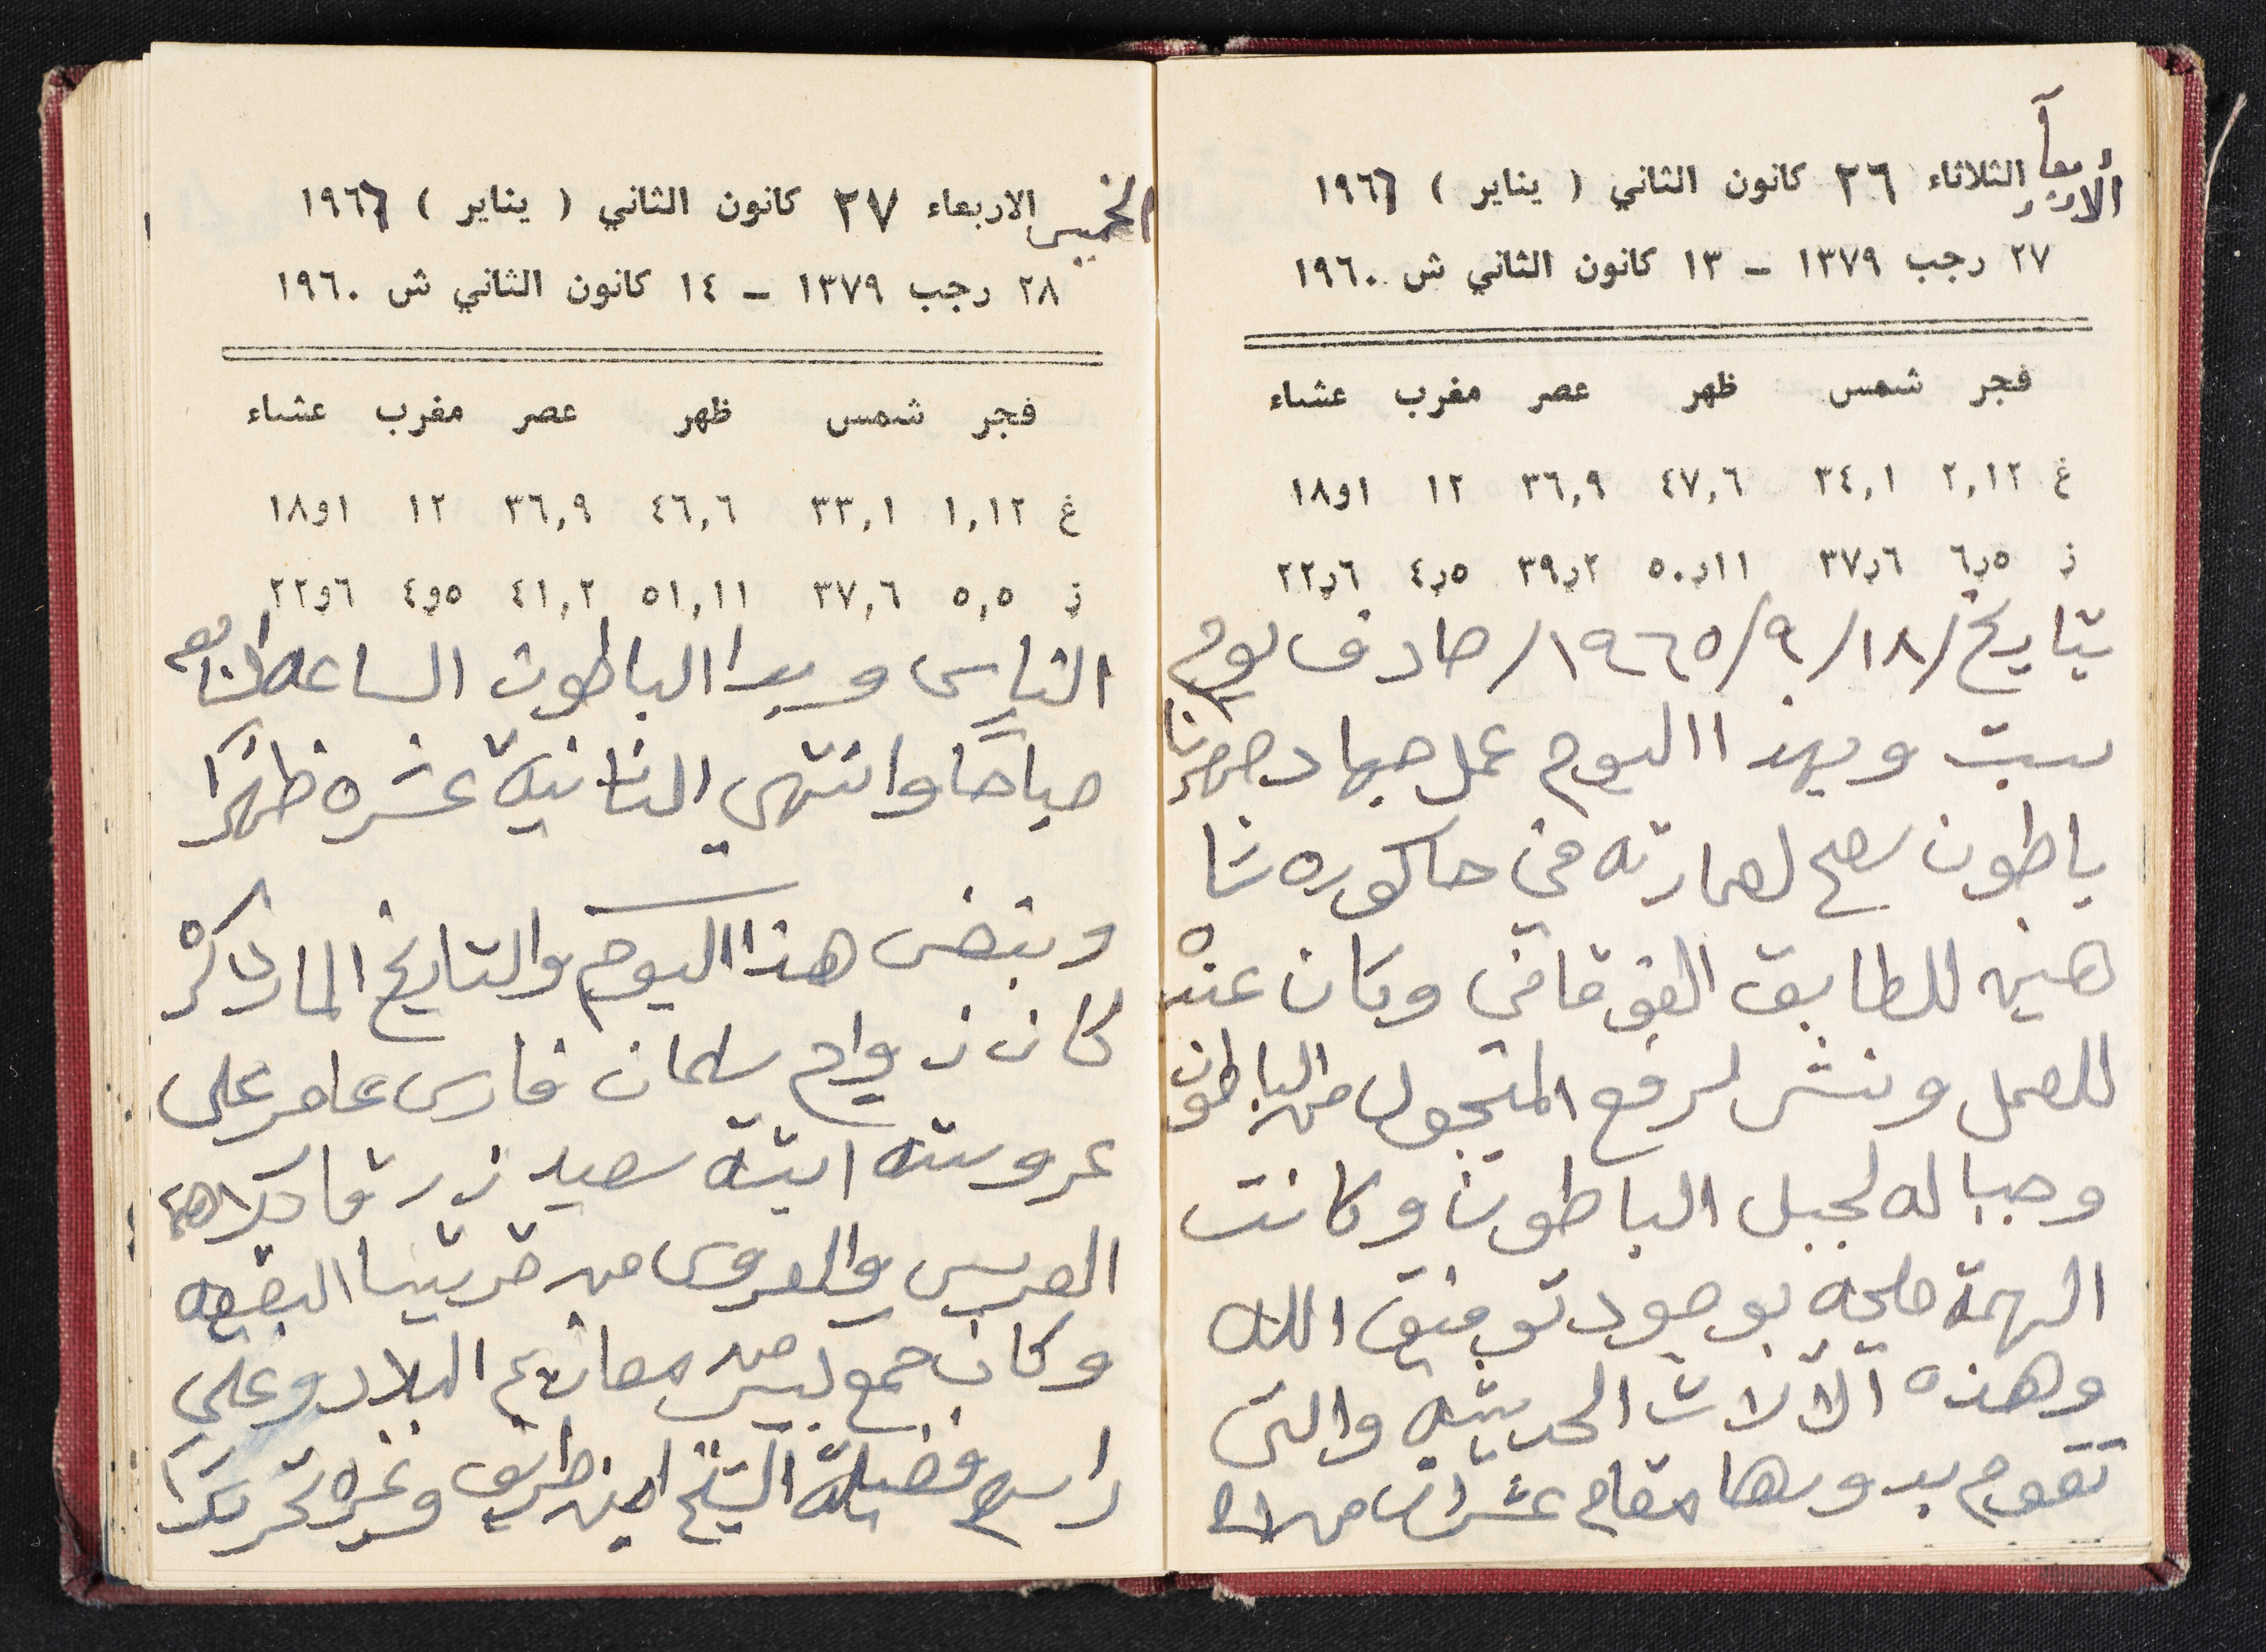 الأربعآ الثلاثاء ٢٦ كانون الثاني ( يناير ) ١٩٦٦
٢٧ رجب ١٣٧٩ – ١٣ كانون الثاني ش ١٩٦٠
فجر شمس ظهر عصر مغرب عشاء
غ ٢,١٢ ٣٤,١ ٤٧,٦ ٣٦,٩ ١٢ ١و١٨
ز ٥ر٦ ٦ر٣٧ ١١ر٥٠ ٢ر٣٩ ٥ر٤ ٦ر٢٢
بتاريخ /١٨/٩/١٩٦٥/ صادف يوم
سبت وبهذا اليوم عمل جهاد
باطون سطح لعمارته في حاكوره
للطابق الفوقاني وكان عنده
للعمل ونش لرفع المجبول من الباطون
وجباله لجبل الباطون وكانت
الهمة مليحه بوجود توفيق الله
وهذه الآلات الحديثه والتي
تقوم بدورها مقام عشرات من
الخميس الاربعاء ٢٧ كانون الثاني ( يناير ) ١٩٦٦
٢٨ رجب ١٣٧٩ – ١٤ كانون الثاني ش ١٩٦٠
فجر شمس ظهر عصر مغرب عشاء
غ ١,١٢ ٣٣,١ ٤٦,٦ ٣٦,٩ ١٢ ١و١٨
ز ٥,٥ ٣٧,٦ ٥١,١١ ٤١,٢ ٥و٤ ٦و٢٢
الناس وبدا الباطون الساعه
صباحًا وانتهى الثانية عشره ظهرًا
وبنفس هذا اليوم والتاريخ المار ذكرْه
كان زواج سلمان فارس عامر على
عروسته ابنة سعيد زرقا
العريس والعروس من قريتنا البقيعه
وكان جمع كبير من معازيم البلاد وعلى
راسهم فضيلة الشيخ امين طريف وغيره تحريرًا